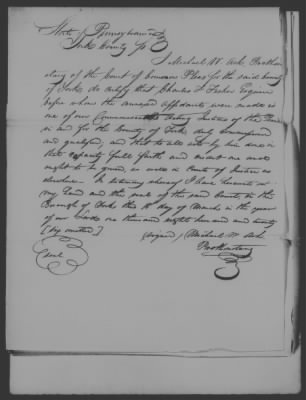 State of Pennsylvania
York County ss
I Michael W. Ash Prothono
tary of the Court of Common Pleas for the said County
of York, do certify that Charles F. Fisher Esquire
before whom the annexed affidavits were made is
one of our Commonwealth Justices of the Peace
in and for the County of York, duly commissioned
and qualified, and that to all acts by him done in
that capacity full faith and credit are and
ought to be given, as well in Courts of Justice as
elsewhere. In testimony whereof I have hereunto set
my hand and the seal of the said Court in the
Borough of York the 18 day of March in the year
of our Lord one thousand eight hundred and twenty
(signed) Michael W Ash
seal
Prothonotary